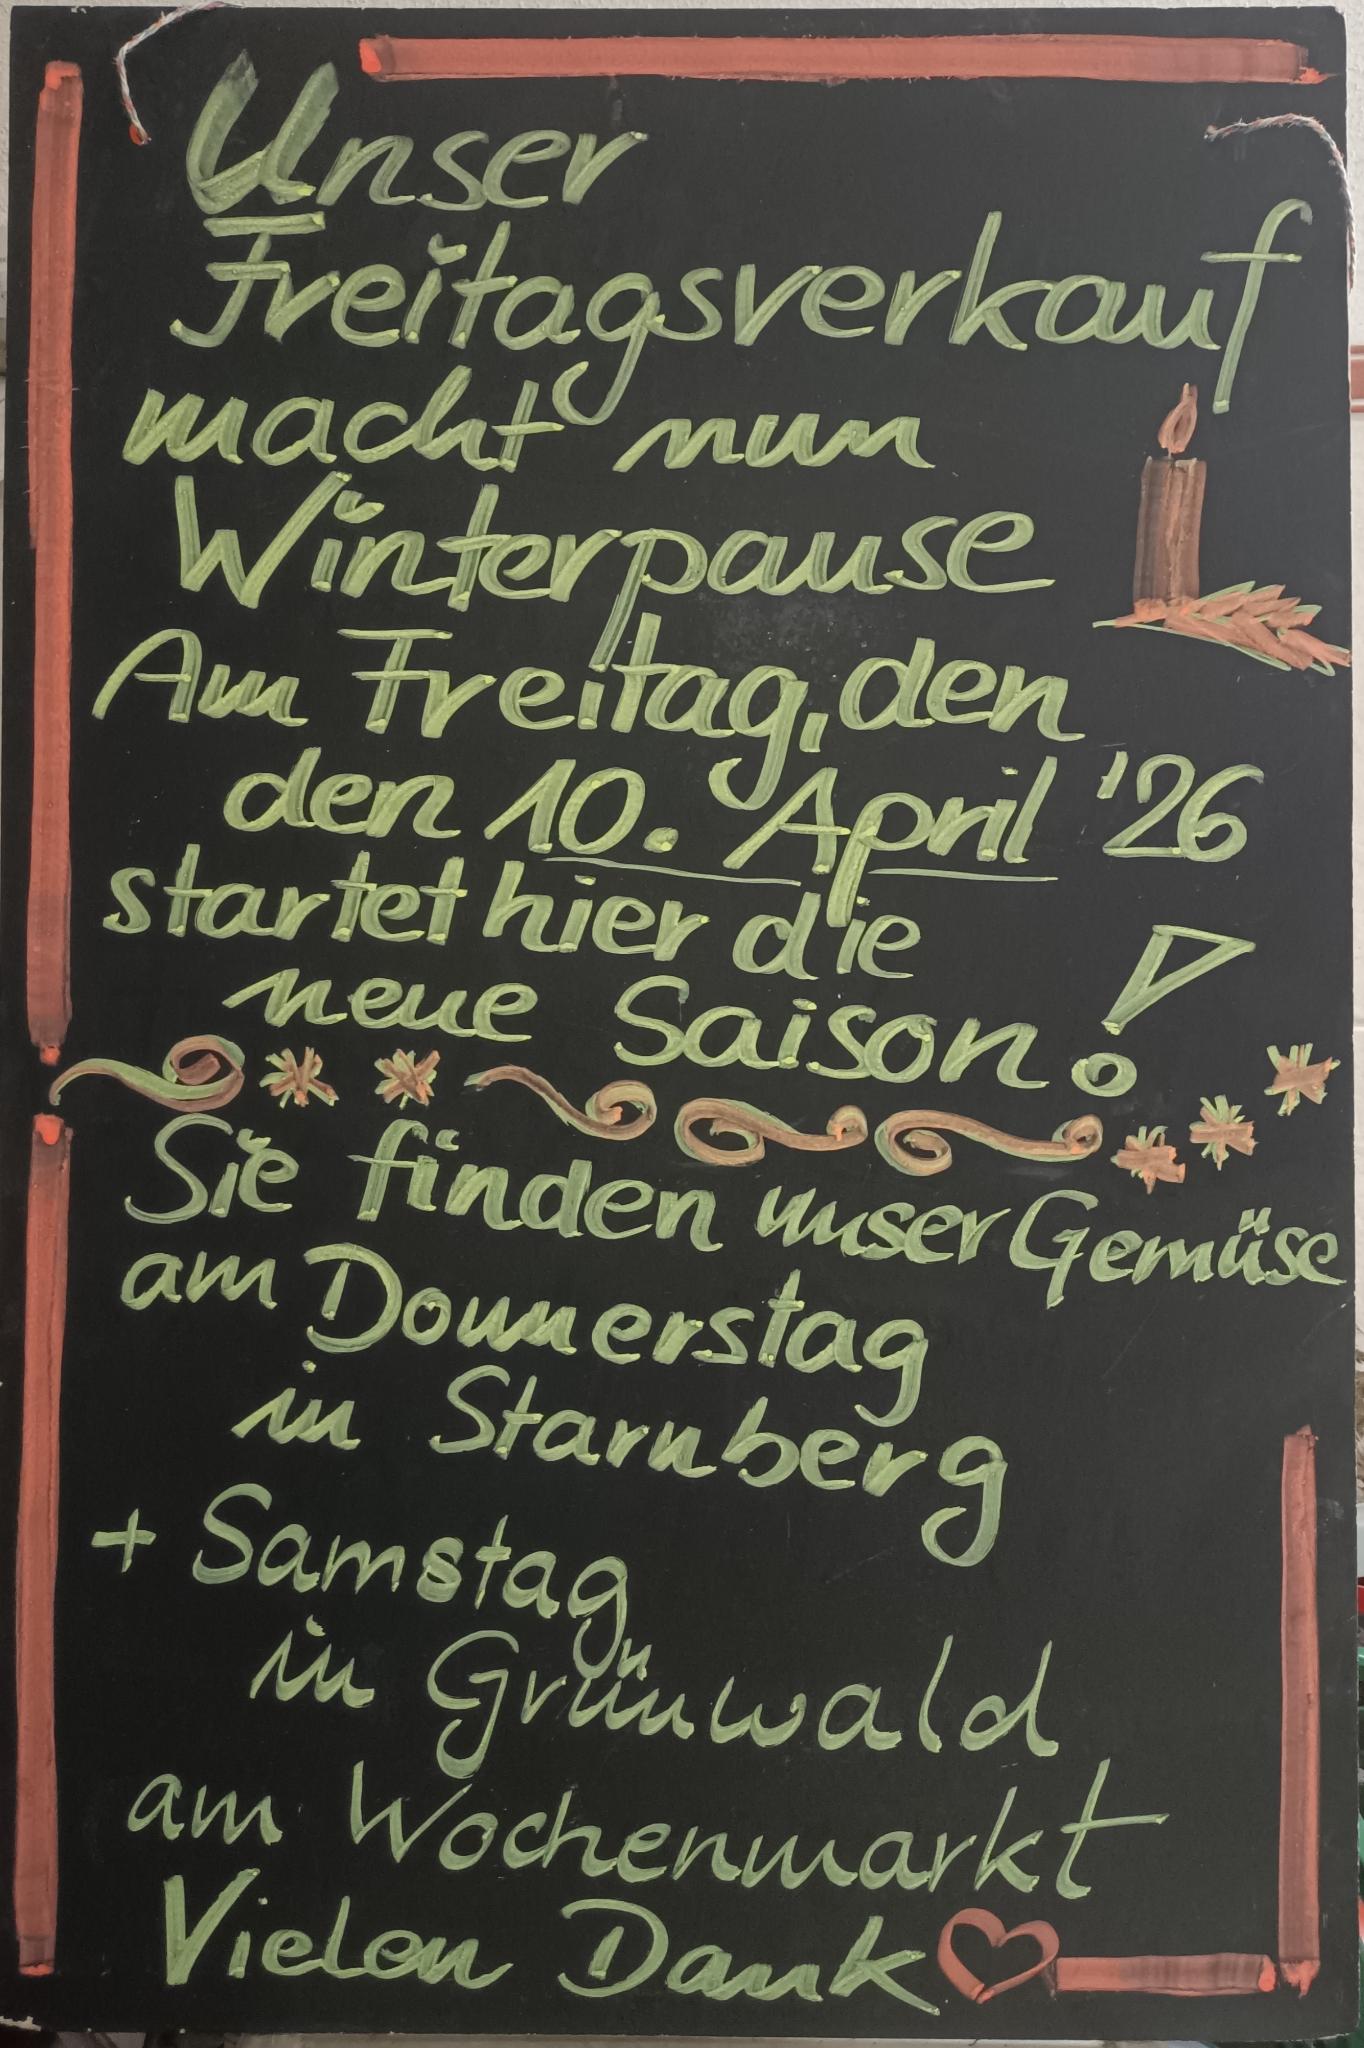 Unser
Freitagsverkauf
macht nun
Winterpause
Am Freitag, den
den 10. April '26
startet hier die
neue Saison!
Sie finden unser Gemüse
am Donnerstag
in Starnberg
+ Samstag
in Grünwald
am Wochenmarkt
Vielen Dank